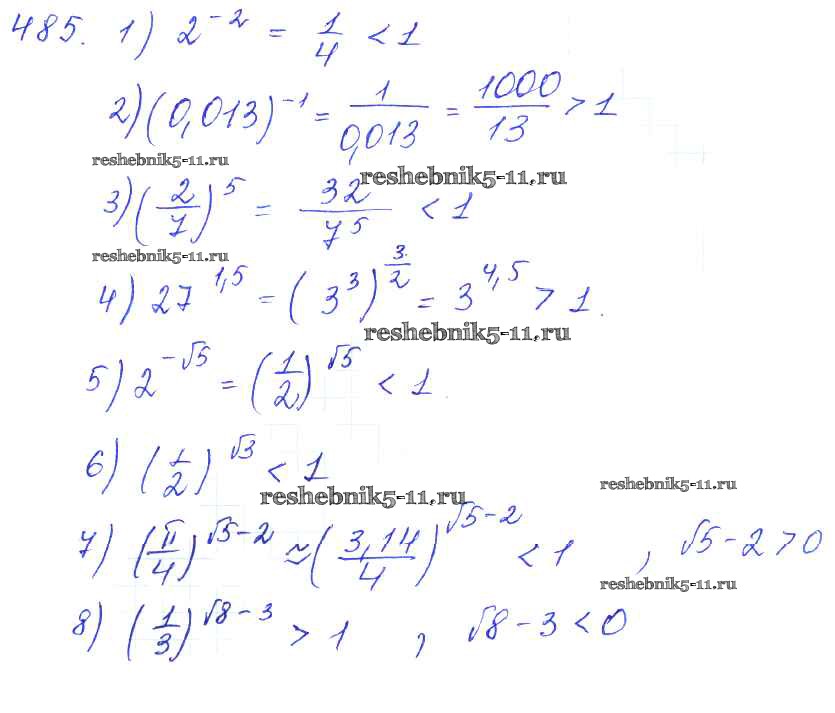 485. 1) 2^{-2} = 1/4 < 1
2) (0,013)^{-1} = 1/0,013 = 1000/13 > 1
reshebnik5-11.ru
reshebnik5-11.ru
3) (2/7)^5 = 32/7^5 < 1
reshebnik5-11.ru
4) 27^{1,5} = (3^3)^{3/2} = 3^{4,5} > 1.
reshebnik5-11.ru
5) 2^{-√5} = (1/2)^{√5} < 1.
6) (1/2)^{√3} < 1
reshebnik5-11.ru
reshebnik5-11.ru
7) (π/4)^{√5-2} ≈ (3,14/4)^{√5-2} < 1 , √5-2>0
reshebnik5-11.ru
8) (1/3)^{√8-3} > 1 , √8-3<0